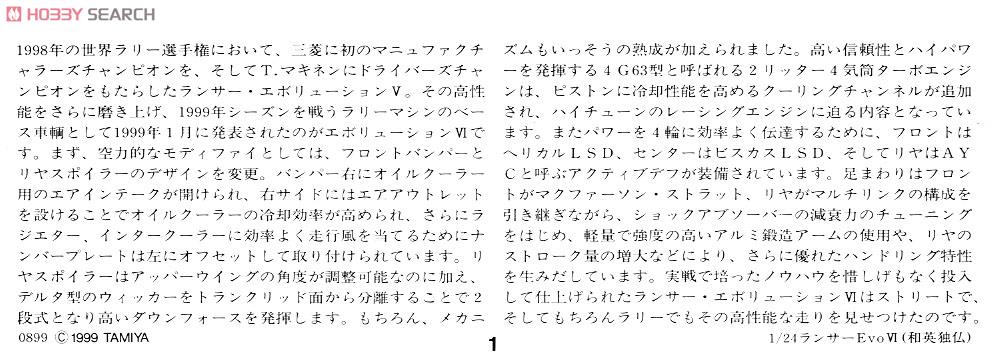 HOBBY SEARCH
1998年の世界ラリー選手権において、三菱に初のマニュファクチ
ャラーズチャンピオンを、そしてT.マキネンにドライバーズチャ
ンピオンをもたらしたランサー・エボリューションⅤ。その高性
能をさらに磨き上げ、1999年シーズンを戦うラリーマシンのベー
ス車輌として1999年1月に発表されたのがエボリューションⅥで
す。まず、空力的なモディファイとしては、フロントバンパーと
リヤスポイラーのデザインを変更。バンパー右にオイルクーラー
用のエアインテークが開けられ、右サイドにはエアアウトレット
を設けることでオイルクーラーの冷却効率が高められ、さらにラ
ジエター、インタークーラーに効率よく走行風を当てるためにナ
ンバープレートは左にオフセットして取り付けられています。リ
ヤスポイラーはアッパーウイングの角度が調整可能なのに加え、
デルタ型のウィッカーをトランクリッド面から分離することで2
段式となり高いダウンフォースを発揮します。もちろん、メカニ
ズムもいっそうの熟成が加えられました。高い信頼性とハイパワ
ーを発揮する4G63型と呼ばれる2リッター4気筒ターボエンジ
ンは、ピストンに冷却性能を高めるクーリングチャンネルが追加
され、ハイチューンのレーシングエンジンに迫る内容となってい
ます。またパワーを4輪に効率よく伝達するために、フロントは
ヘリカルLSD、センターはビスカスLSD、そしてリヤはAY
Cと呼ぶアクティブデフが装備されています。足まわりはフロン
トがマクファーソン・ストラット、リヤがマルチリンクの構成を
引き継ぎながら、ショックアブソーバーの減衰力のチューニング
をはじめ、軽量で強度の高いアルミ鍛造アームの使用や、リヤの
ストローク量の増大などにより、さらに優れたハンドリング特性
を生みだしています。実戦で培ったノウハウを惜しげもなく投入
して仕上げられたランサー・エボリューションⅥはストリートで、
そしてもちろんラリーでもその高性能な走りを見せつけたのです。
0899 ©1999 TAMIYA
1
1/24ランサーEvoⅥ(和英独仏)